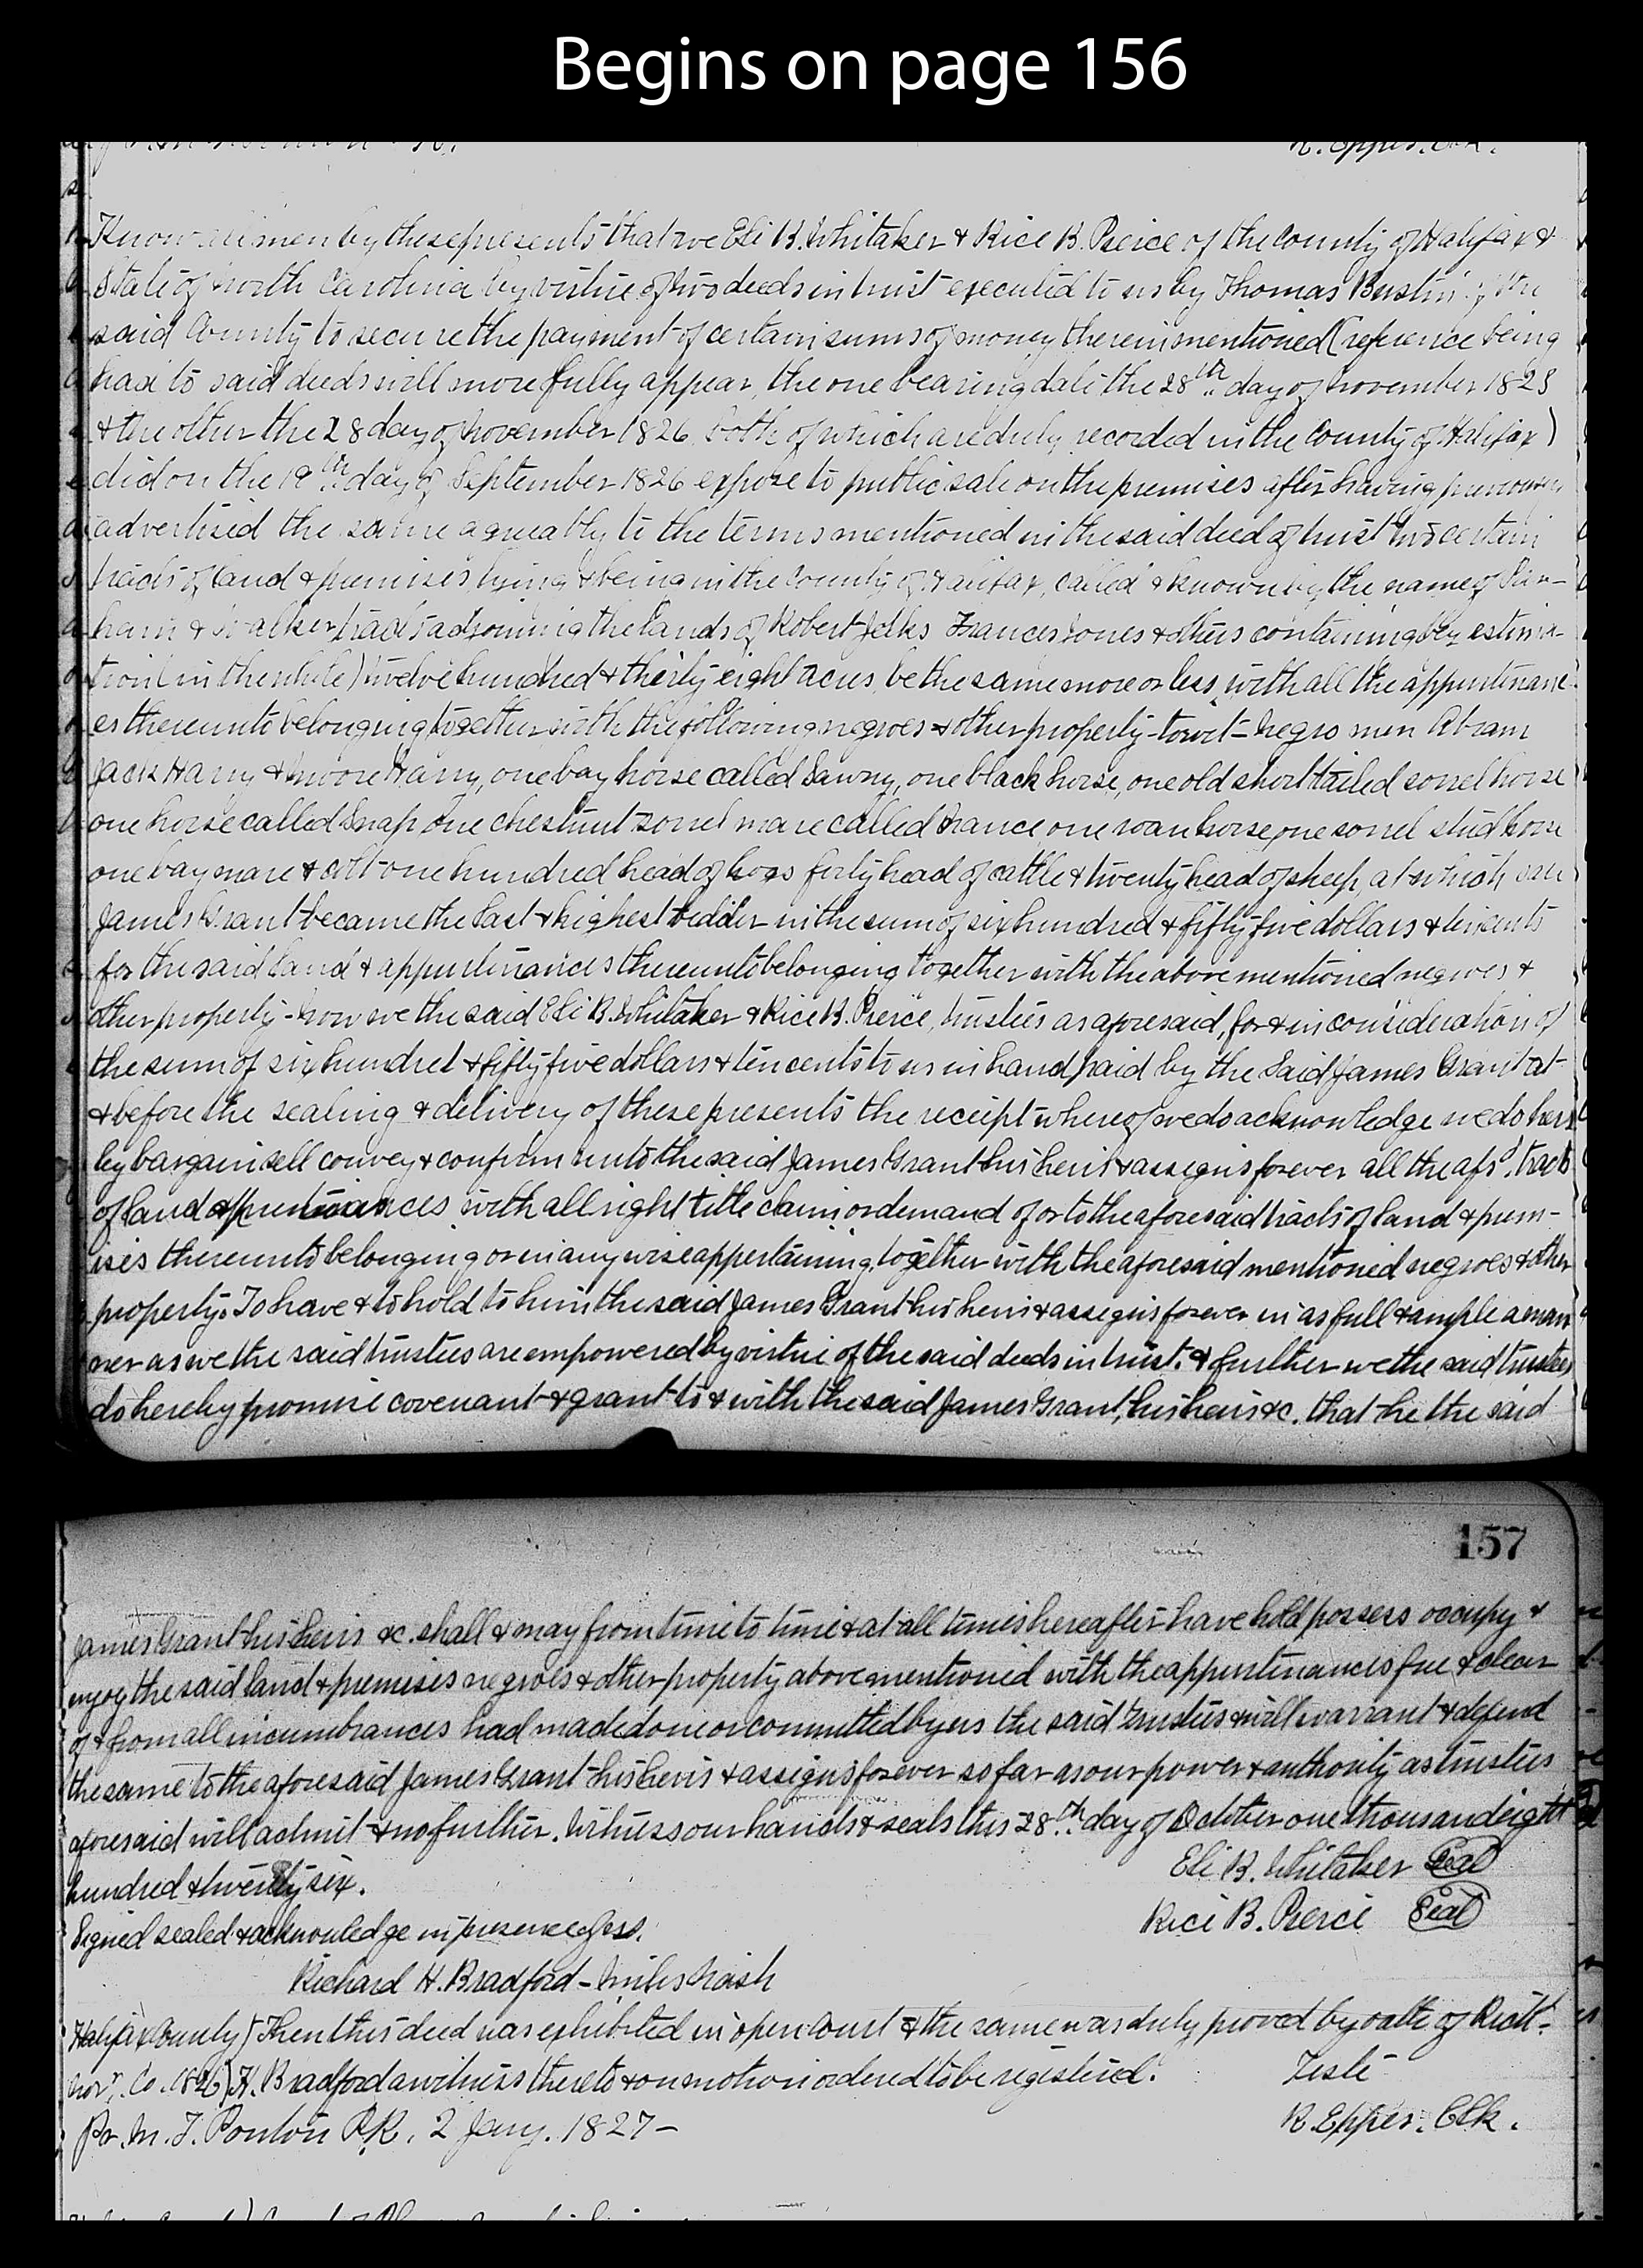 Begins on page 156
R. Eppes. Clk.
Know all men by these presents that we Eli B. Whitaker & Rice B. Pierce of the County of Halifax &
State of North Carolina by virtue of two deeds in trust executed to us by Thomas Bustin of the
said County to secure the payment of certain sums of money therein mentioned (reference being
had to said deeds will more fully appear, the one bearing date the 28th day of November 1823
& the other the 28 day of November 1826 both of which are duly recorded in the County of Halifax)
did on the 19th day of September 1826 expose to public sale on the premises after having
advertised the same agreably to the terms mentioned in the said deed of trust two certain
tracts of land & premises lying & being in the County of Halifax, called & known by the name of
ham & Walker tracts adjoining the lands of Robert Jelks Frances Jones & others containing by estima-
tion (in the whole) twelve hundred & thirty eight acres, be the same more or less, with all the appurtinanc-
es thereunto belonging together with the following negroes & other property - towit - Negro men Abram
Jack Harry & Moore Harry, one bay horse called Sawny, one black horse, one old short tailed sorrel horse
one horse called Snap one chestnut sorrel mare called one roan horse, one sorrel stud horse
one bay mare & colt one hundred head of hogs forty head of cattle & twenty head of sheep, at which sale
James Grant became the last & highest bidder in the sum of six hundred & fifty five dollars & ten cents
for the said land & appurtinances thereunto belonging together with the above mentioned negroes &
other property - Now we the said Eli B. Whitaker & Rice B. Pierce, trusties as aforesaid, for & in consideration of
the sum of six hundred & fifty five dollars & ten cents to us in hand paid by the said James Grant at
& before the sealing & delivery of these presents the receipt whereof we do acknowledge we do here
by bargain sell convey & confirm unto the said James Grant his heirs & assigns forever all the afsd. tracts
of land appurtinances with all right title claim or demand of or to the aforesaid tracts of land & prem-
ises thereunto belonging or in any wise appertaining, together with the aforesaid mentioned negroes & other
property. To have & to hold to him the said James Grant his heirs & assigns forever in as full & ample a man
ner as we the said trusties are empowered by virtue of the said deeds in trust. & further we the said trustees
do hereby promise covenant & grant to & with the said James Grant, his heirs &c. that he the said
157
James Grant his heirs &c. shall & may from time to time & at all times hereafter have hold possess occupy &
enjoy the said land & premises negroes & other property above mentioned with the appurtinances free & clear
of & from all incumbrances had made done or committed by us the said Trusties & will warrant & defend
the same to the aforesaid James Grant his heirs & assigns forever so far as our power & authority as trusties
aforesaid will admit & no further. Witness our hands & seals this 28th day of October one thousand eight
hundred & twenty six.
Eli B. Whitaker Seal
Rice B. Pierce Seal
Signed sealed & acknowledge in presence of us.
Richard H. Bradford - Miles Nash
Halifax County) Then this deed was exhibited in open Court & the same was duly proved by oath of Richd.
Novr. Co. 1826) H. Bradford a witness thereto & on motion ordered to be registered.
Teste
Pr. M. T. Ponton P.R. 2 Jany. 1827 -
R. Eppes. Clk.